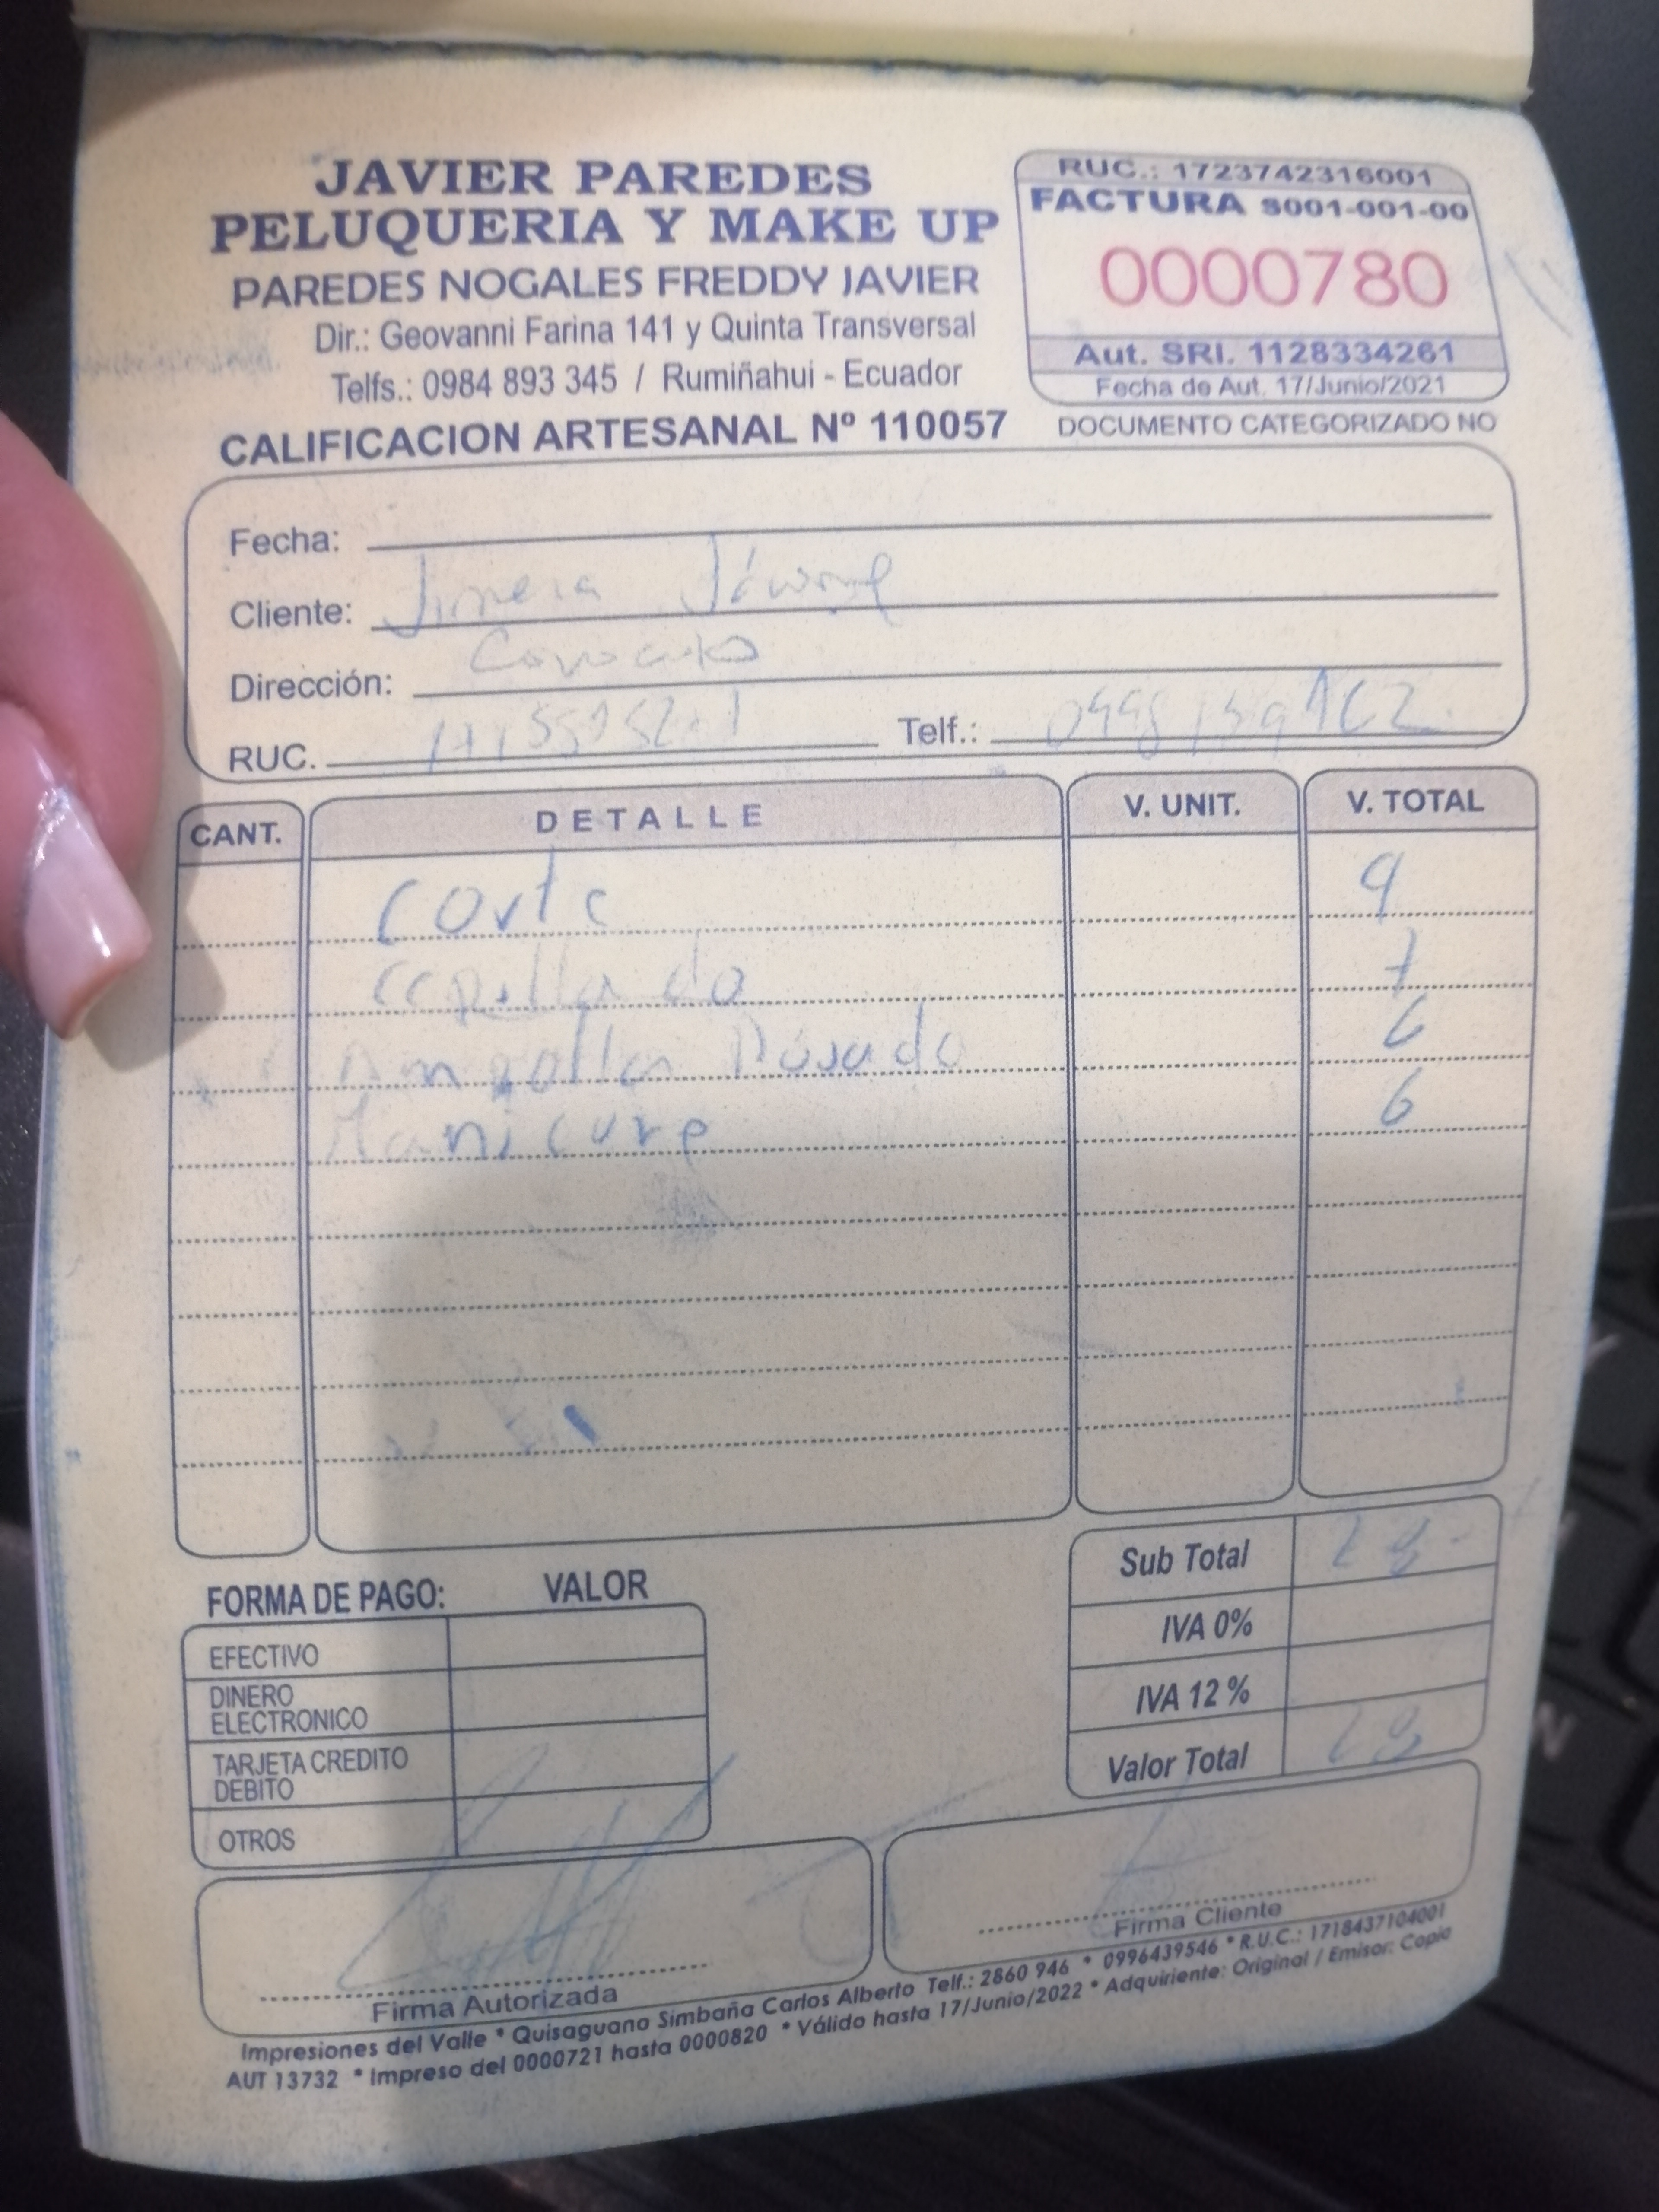 JAVIER PAREDES
PELUQUERIA Y MAKE UP
PAREDES NOGALES FREDDY JAVIER
Dir.: Geovanni Farina 141 y Quinta Transversal
Telfs.: 0984 893 345 / Rumiñahui - Ecuador
CALIFICACION ARTESANAL Nº 110057
RUC.: 1723742316001
FACTURA S001-001-00
0000780
Aut. SRI. 1128334261
Fecha de Aut. 17/Junio/2021
DOCUMENTO CATEGORIZADO NO
Fecha:
Cliente:
Dirección:
RUC. Telf.:
CANT. DETALLE V. UNIT. V. TOTAL
Corte 9
cepillado 7
Ampolla 6
Manicure 6
Sub Total 28
IVA 0%
IVA 12 %
Valor Total 28
FORMA DE PAGO: VALOR
EFECTIVO
DINERO
ELECTRONICO
TARJETA CREDITO
DEBITO
OTROS
Firma Autorizada
Firma Cliente
Impresiones del Valle * Quisaguano Simbaña Carlos Alberto Telf.: 2860 946 * 0996439546 * R.U.C.: 1718437104001
AUT 13732 * Impreso del 0000721 hasta 0000820 * Válido hasta 17/Junio/2022 * Adquiriente: Original / Emisor: Copia